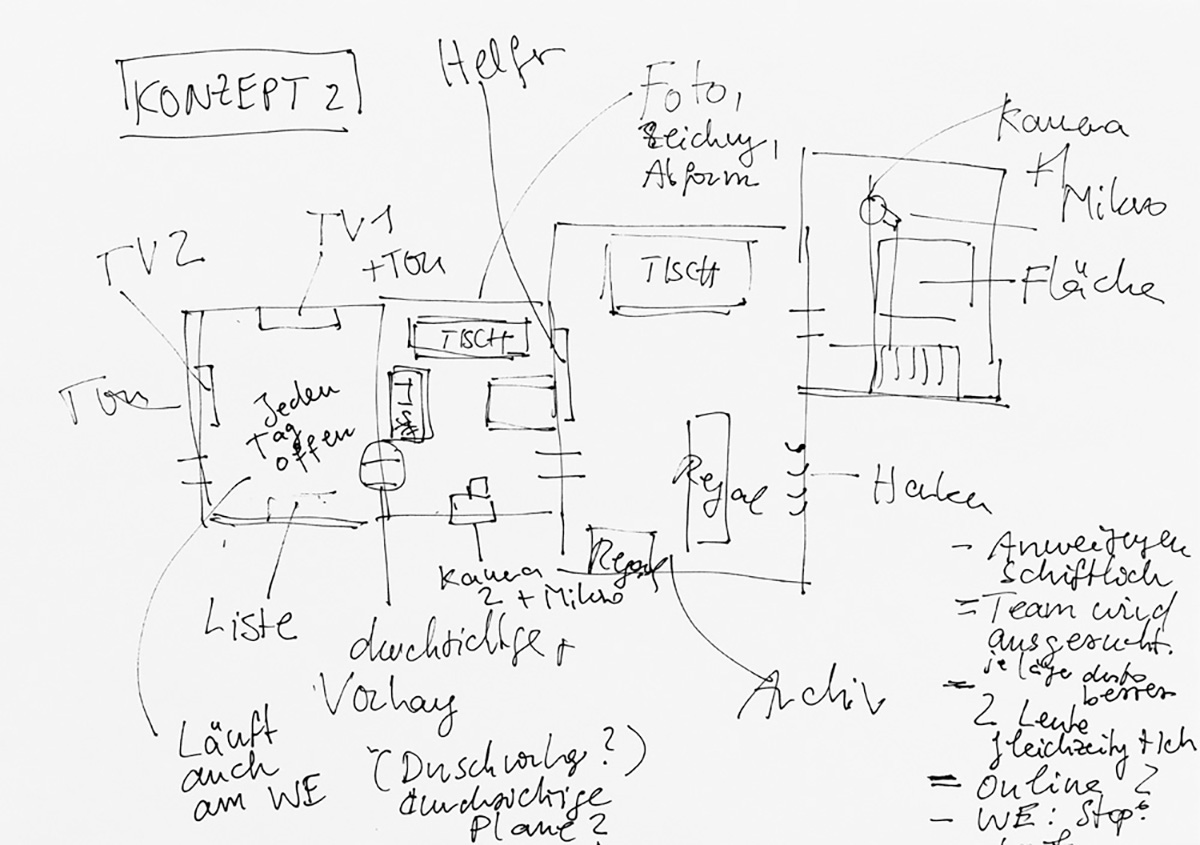 KONZEPT 2
Helfer
Foto,
Zeichng,
Abform
Kamera
+ Mikro
TV 2
TV 1
+ Ton
TISCH
Fläche
TISCH
Ton
Jeden
Tag
offen
TISCH
Regal
Haken
Regal
Liste
Kamera
2 + Mikro
durchsichtige +
Vorhang
(Duschvorhg?)
durchsichtige
Plane?
Läuft
auch
am WE
Archiv
- Anweisungen
schriftlich
= Team wird
ausgesucht.
je läger desto
besser
2 Leute
gleichzeitg + Ich
= Online ?
- WE: Stop?